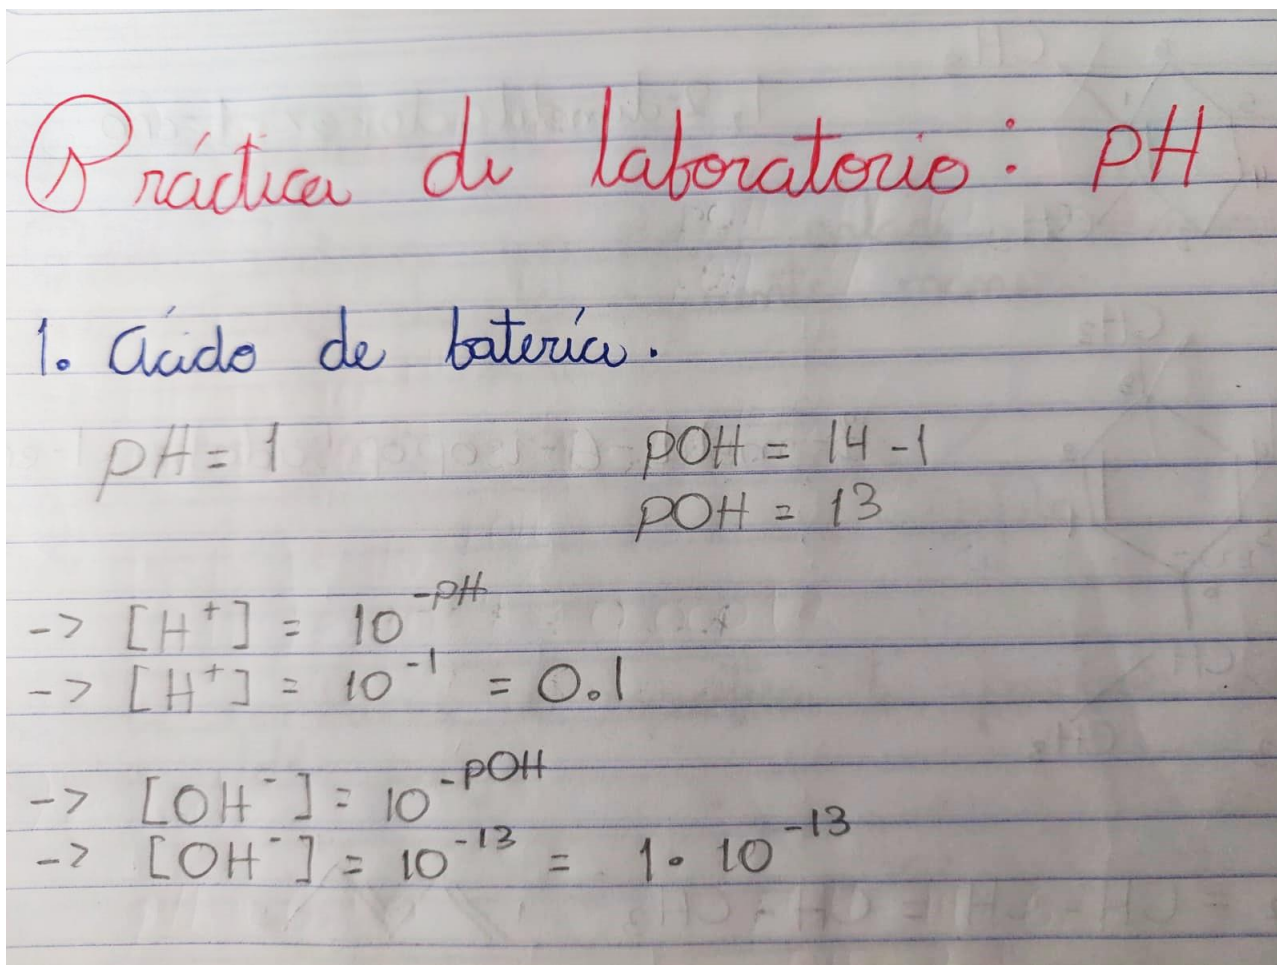 Práctica de laboratorio: pH
1. Ácido de batería.
pH = 1
pOH = 14 - 1
pOH = 13
-> [H⁺] = 10^-pH
-> [H⁺] = 10^-1 = 0.1
-> [OH⁻] = 10^-pOH
-> [OH⁻] = 10^-13 = 1 • 10^-13